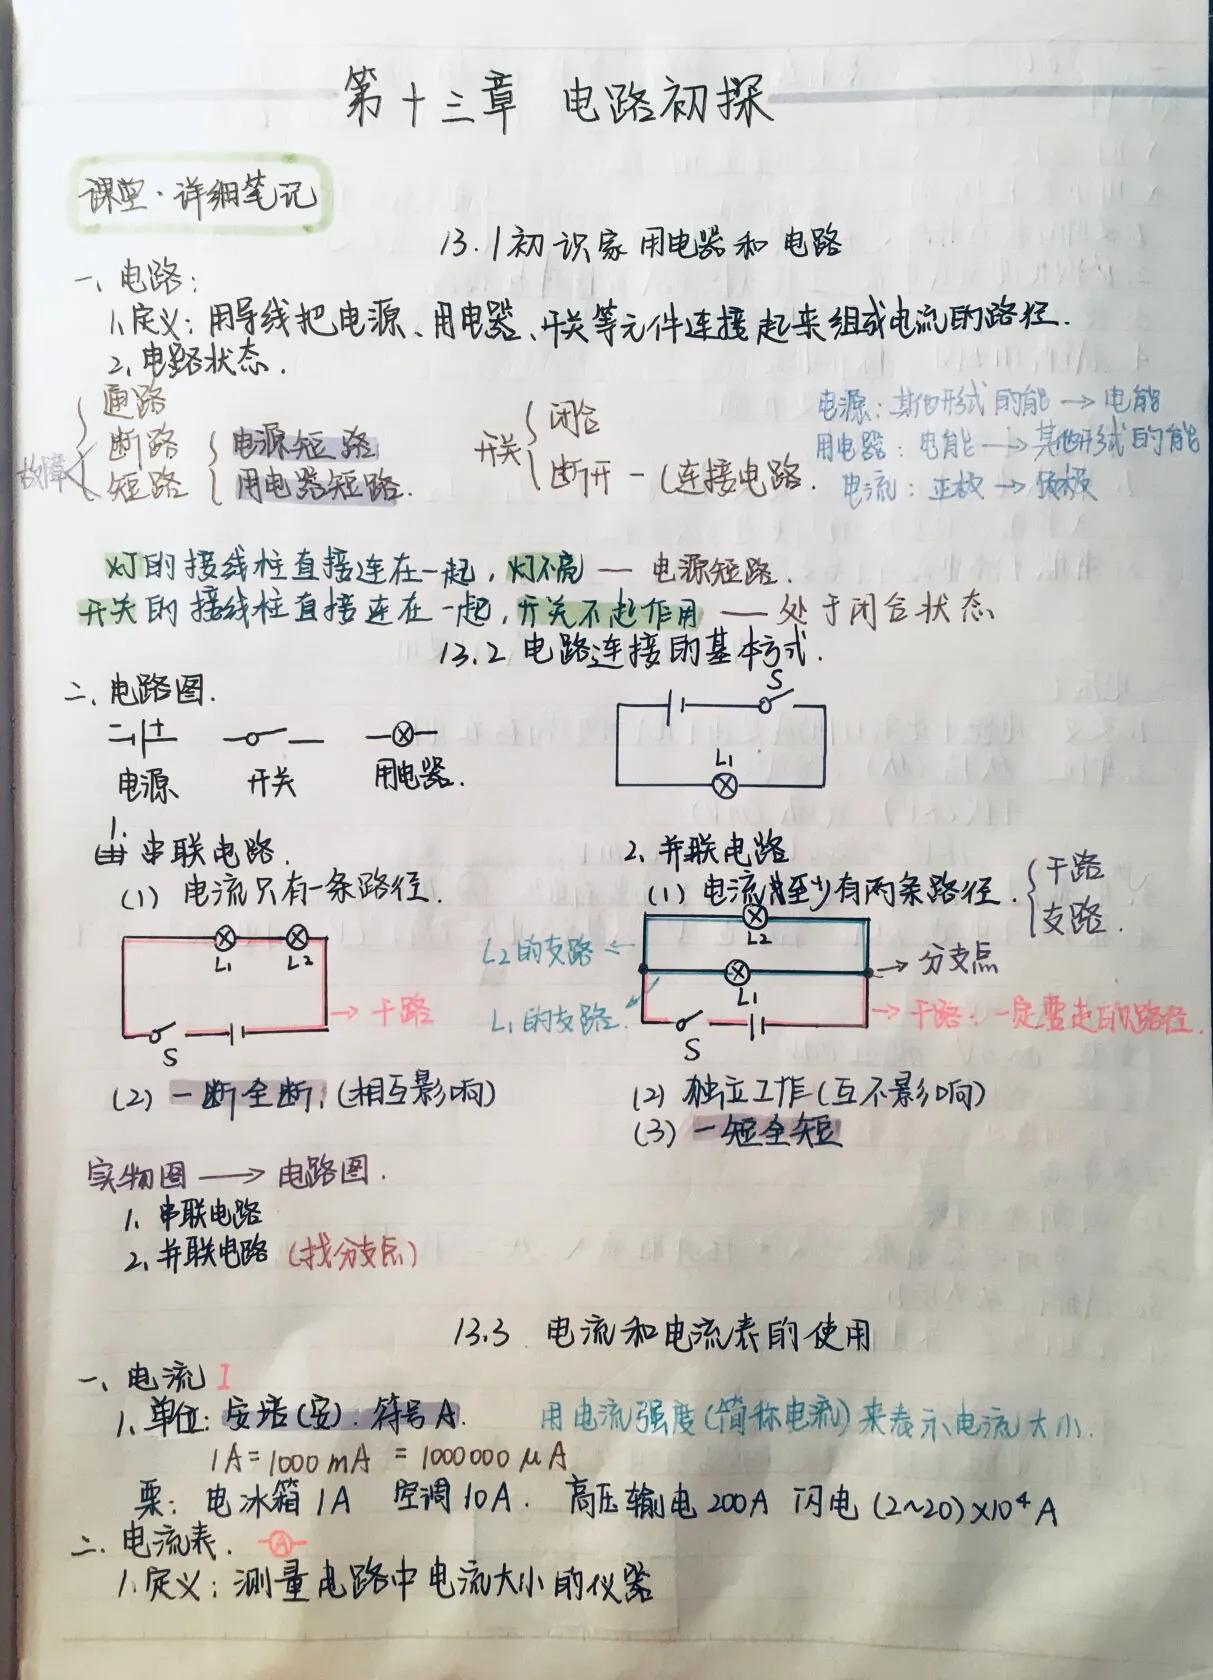 第十三章 电路初探
课堂·详细笔记
13.1 初识家用电器和电路
一、电路：
1、定义：用导线把电源、用电器、开关等元件连接起来组成电流的路径.
2、电路状态.
通路
断路
短路
故障
电源短路
用电器短路.
开关
闭合
断开 — (连接电路.
电源：其他形式的能 → 电能
用电器：电能 → 其他形式的能
电流：正极 → 负极
灯的接线柱直接连在一起，灯不亮 — 电源短路.
开关的接线柱直接连在一起，开关不起作用 — 处于闭合状态
13.2 电路连接的基本方式.
二、电路图.
− +
电源 开关 用电器.
S
L1
1.
串联电路.
(1) 电流只有一条路径.
L1 L2
→ 干路
S
(2) 一断全断，(相互影响)
2、并联电路
(1) 电流至少有两条路径.
干路
支路.
L2的支路 ←
L2
→ 分支点
L1的支路.
L1
→ 干路：一定要走的路径.
S
(2) 独立工作(互不影响)
(3) 一短全短
实物图 → 电路图.
1、串联电路
2、并联电路 (找分支点)
13.3 电流和电流表的使用
一、电流 I
1、单位：安培(安). 符号A.
用电流强度(简称电流)来表示电流大小.
1A=1000mA =1000000μA
栗：电冰箱1A 空调10A. 高压输电200A 闪电(2~20)×10⁴A
二、电流表. A
1、定义：测量电路中电流大小的仪器